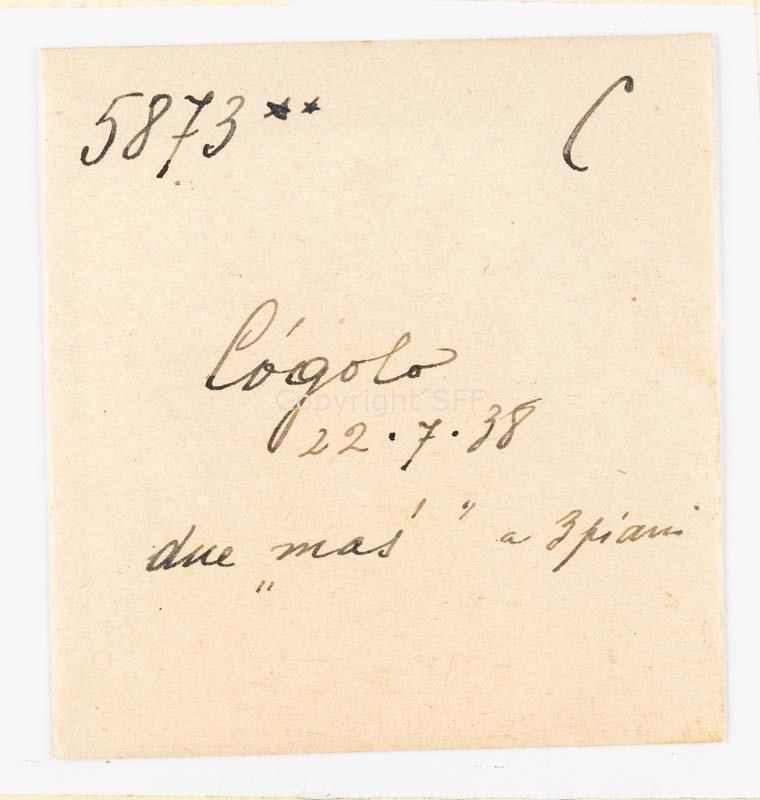 5873** C
Cógolo
Copyright SFF
22.7.38
due „maś" a 3 piani